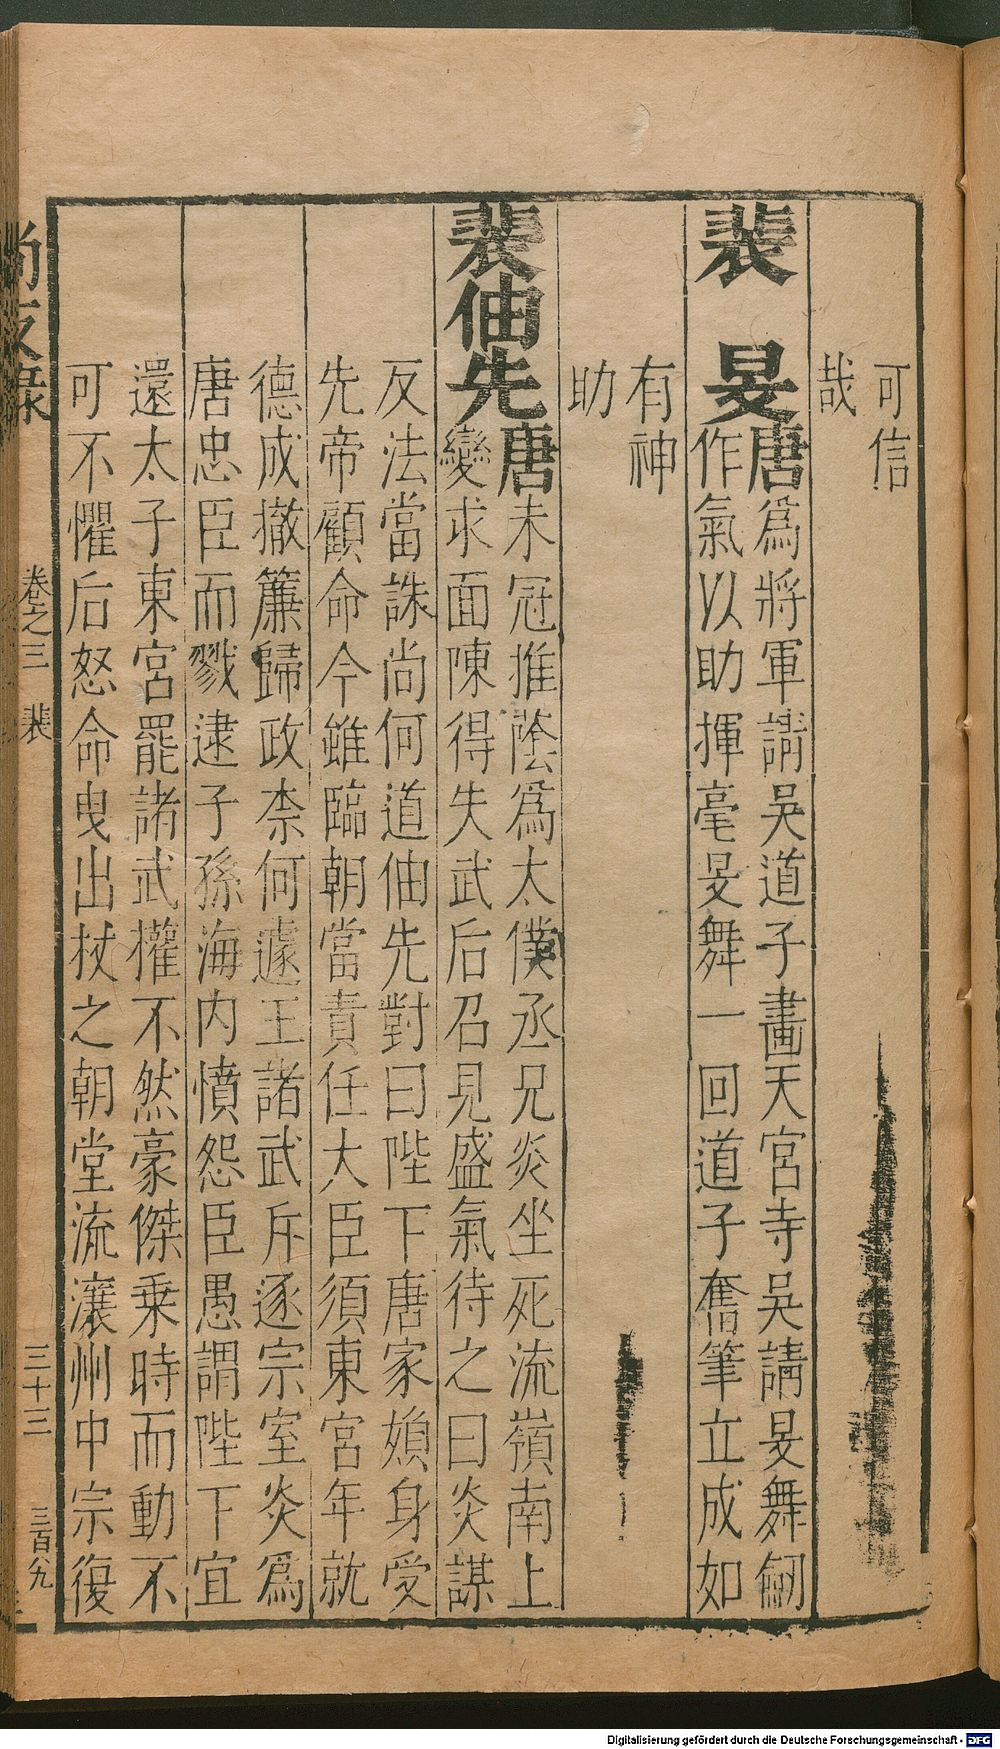 可信
哉
裴　旻唐為將軍請吳道子畫天宮寺吳請旻舞劒
作氣以助揮毫旻舞一回道子奮筆立成如
有神
助
裴伷先唐未冠推蔭為太僕丞兄炎坐死流嶺南上
變求面陳得失武后召見盛氣待之曰炎謀
反法當誅尚何道伷先對曰陛下唐家㛐身受
先帝顧命今雖臨朝當責任大臣須東宮年就
德成撤簾歸政柰何遽王諸武斥逐宗室炎為
唐忠臣而戮逮子孫海內憤怨臣愚謂陛下宜
還太子東宮罷諸武權不然豪傑乗時而動不
可不懼后怒命曳出杖之朝堂流瀼州中宗復
尚友錄　卷之三　裴　三十三　三百九
Digitalisierung gefördert durch die Deutsche Forschungsgemeinschaft - DFG